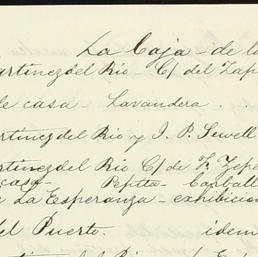 La Caja - de la
artinez del Rio - C/ del Zap
de casa - Lavandera . .
artinez del Rio y J. P. Sewell
artinez del Rio C/ de F. Zepe
casa - Pepita - Carball
a La Esperanza - exhibicion
del Puerto. idem
del Rio